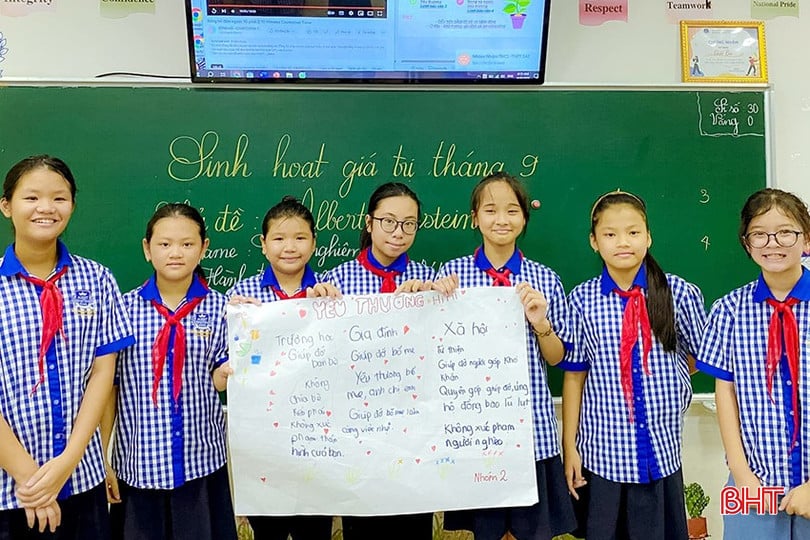 Integrity
Confidence
Respect
Teamwork
National Pride
Sĩ số 30
Vắng 0
Sinh hoạt giá trị tháng 9
đề : Albert Einstein
3
4
YÊU THƯƠNG
Trường học
Giúp đỡ
bạn bè
Không
chia bè
kéo phái
Không xúc
phạm thân
hình của bạn.
Gia đình
Giúp đỡ bố mẹ
Yêu thương bố
mẹ, anh chị em
Giúp đỡ bố mẹ làm
công việc nhà.
Xã hội
Từ thiện
Giúp đỡ người gặp khó
khăn
Quyên góp giúp đỡ, ủng
hộ đồng bào lũ lụt
Không xúc phạm
người nghèo
Nhóm 2
BHT